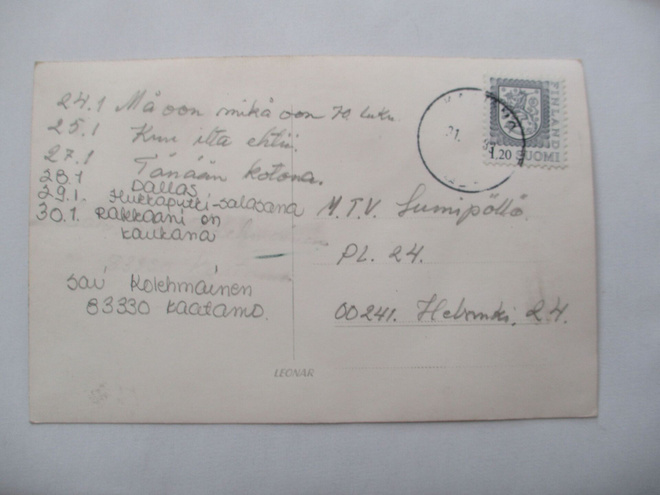 24.1 Mä oon mikä oon 70 luku.
25.1 Kun ilta ehtii.
27.1 Tänään kotona.
28.1 DALLAS
29.1. Hukkaputki-salasana
30.1. Rakkaani on
kaukana
Sari Kolehmainen
83330 Kaatamo.
M.T.V. Lumipöllö
PL. 24.
00241. Helsinki, 24.
FINLAND
1.20 SUOMI
21.
LEONAR